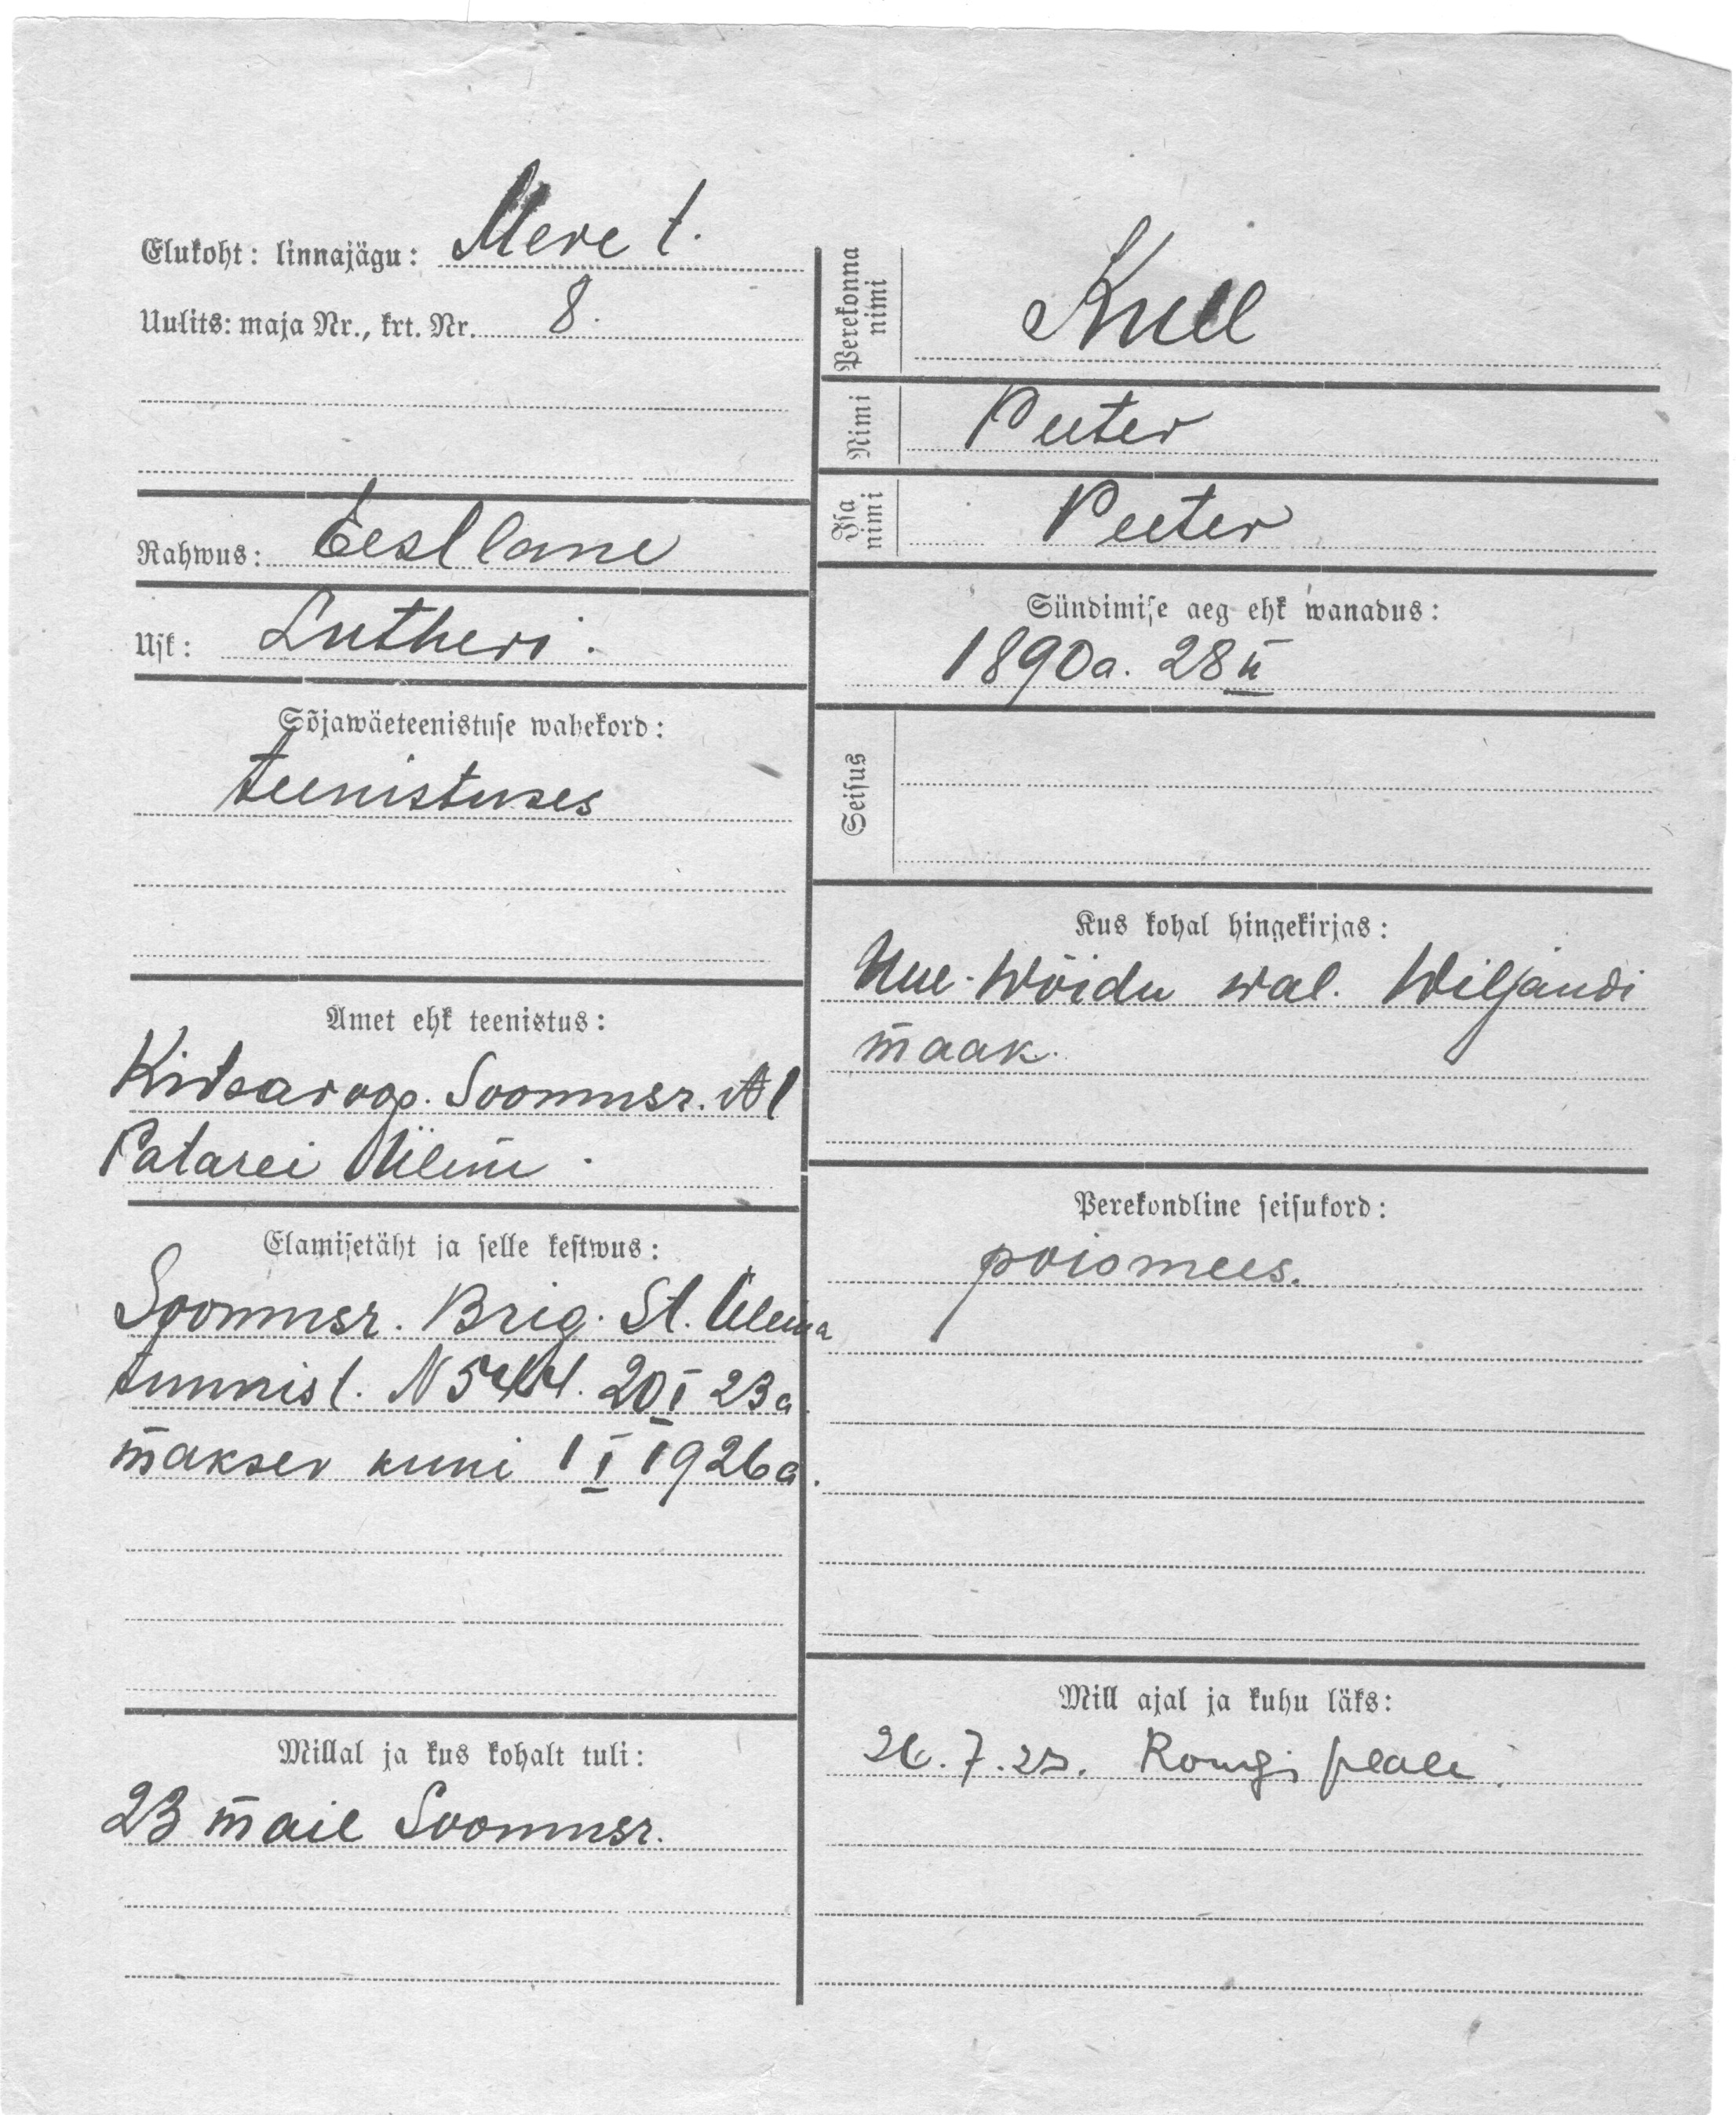 Elukoht: linnajägu: Mere t.
Uulits: maja Nr., krt. Nr. 8.
Rahwus: Eestlane
Usk: Lutheri.
Sõjawäeteenistuse wahekord:
teenistuses
Amet ehk teenistus:
Kitsaroop. Soomusr. №1
Patarei Ülem.
Elamisetäht ja selle kestwus:
Soomusr. Brig. St. Ülema
tunnist. N 5444. 20 I 23a.
maksev kuni 1 I 1926a.
Millal ja kus kohalt tuli:
23 mail Soomusr.
Perekonna nimi
Kull
Nimi
Peeter
Isa nimi
Peeter
Sündimise aeg ehk wanadus:
1890a. 28 II
Seisus
Kus kohal hingekirjas:
Uue-Wõidu wal. Wiljandi
maak.
Perekondline seisukord:
poismees.
Mill ajal ja kuhu läks:
26.7.23. Rongi peale.